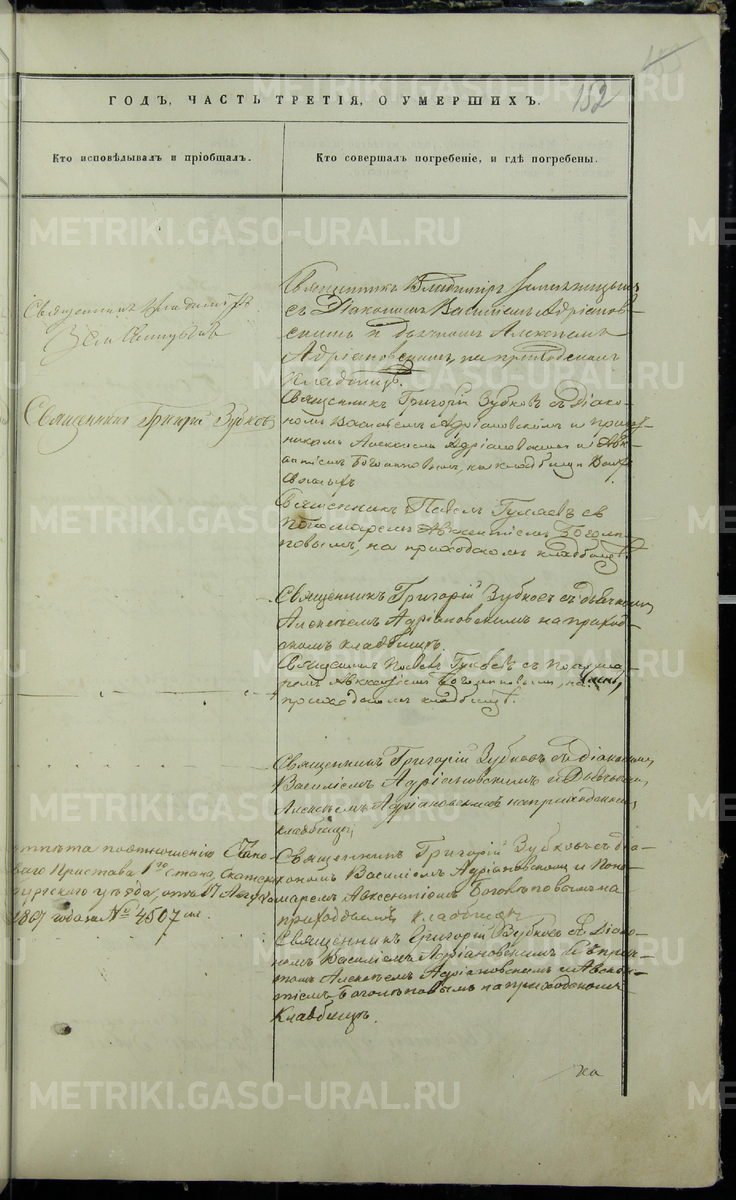 152
ГОДЪ, ЧАСТЬ ТРЕТІЯ, О УМЕРШИХЪ.
Кто исповѣдывалъ и пріобщалъ.
Кто совершалъ погребеніе, и гдѣ погребены.
Священникъ Владиміръ
Священникъ Владиміръ
съ Діакономъ Василіемъ Адріанов-
скимъ и дьячкомъ Алексѣемъ
Адріановскимъ, на приходскомъ
кладбищѣ.
Священникъ Григорій Зубковъ
Священникъ Григорій Зубковъ съ Діако-
номъ Василіемъ Адріановскимъ и
Алексѣемъ Адріановскимъ и Авк-
сентіемъ Боголѣповымъ, на кладбищѣ
Священникъ Павелъ съ
Пономаремъ Авксентіемъ Боголѣ-
повымъ, на приходскомъ кладбищѣ.
Священникъ Григорій Зубковъ съ дьячкомъ
Алексѣемъ Адріановскимъ на приход-
скомъ кладбищѣ.
Священникъ Павелъ съ Понома-
ремъ Авксентіемъ Боголѣповымъ, на
приходскомъ кладбищѣ.
Священникъ Григорій Зубковъ съ Діакономъ
Василіемъ Адріановскимъ и Дьячкомъ
Алексѣемъ Адріановскимъ на приходскомъ
кладбищѣ
отпѣта по отношенію Стано-
ваго Пристава 1го Стана, Екатерин-
бургскаго уѣзда, отъ 17 Августа
1867 года за № 4507 м.
Священникъ Григорій Зубковъ съ Діа-
кономъ Василіемъ Адріановскимъ и Поно-
маремъ Авксентіемъ Боголѣповымъ на
приходскомъ кладбищѣ
Священникъ Григорій Зубковъ съ Діако-
номъ Василіемъ Адріановскимъ
Алексѣемъ Адріановскимъ и Авксен-
тіемъ Боголѣповымъ на приходскомъ
кладбищѣ.
METRIKI.GASO-URAL.RU